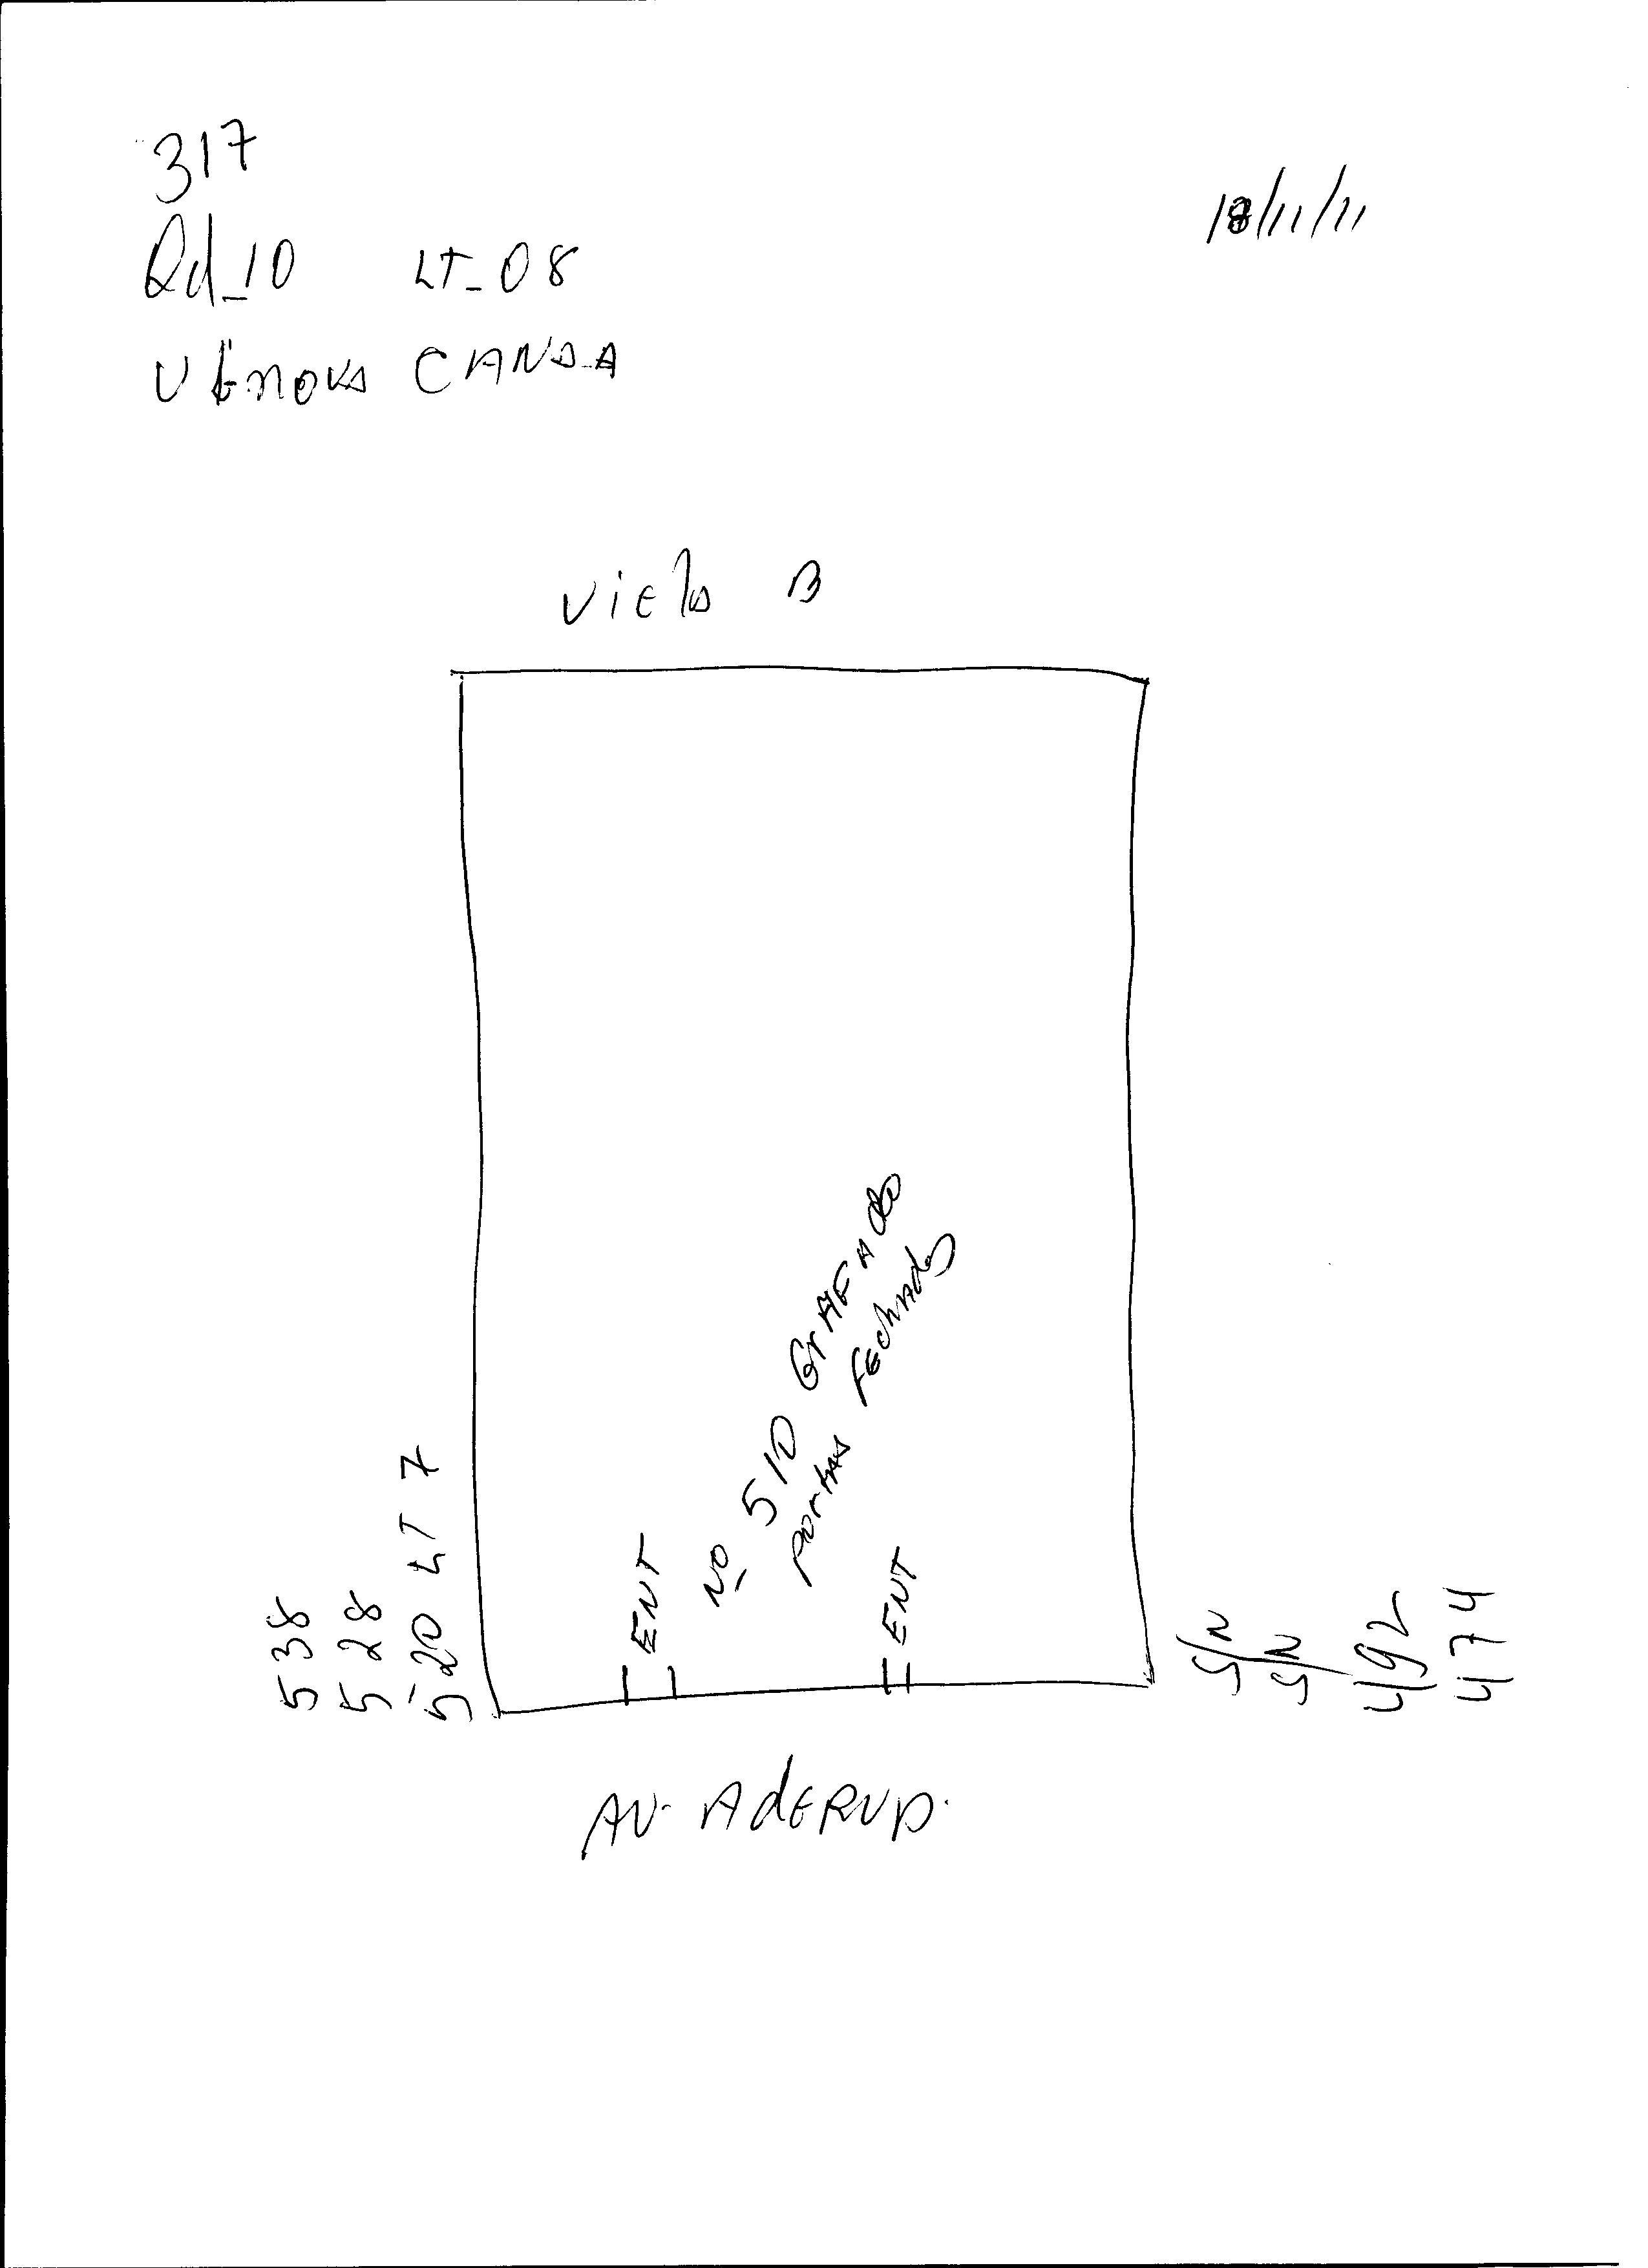 317
18/11/11
Qd_10 LT_08
VÊNOVA CANAA
Viela B
No 510 GrAFAdo
portas FEchadas
ENT
ENT
538
528
520 LT 7
S/N
S/N
492
474
AV. AdERUP.